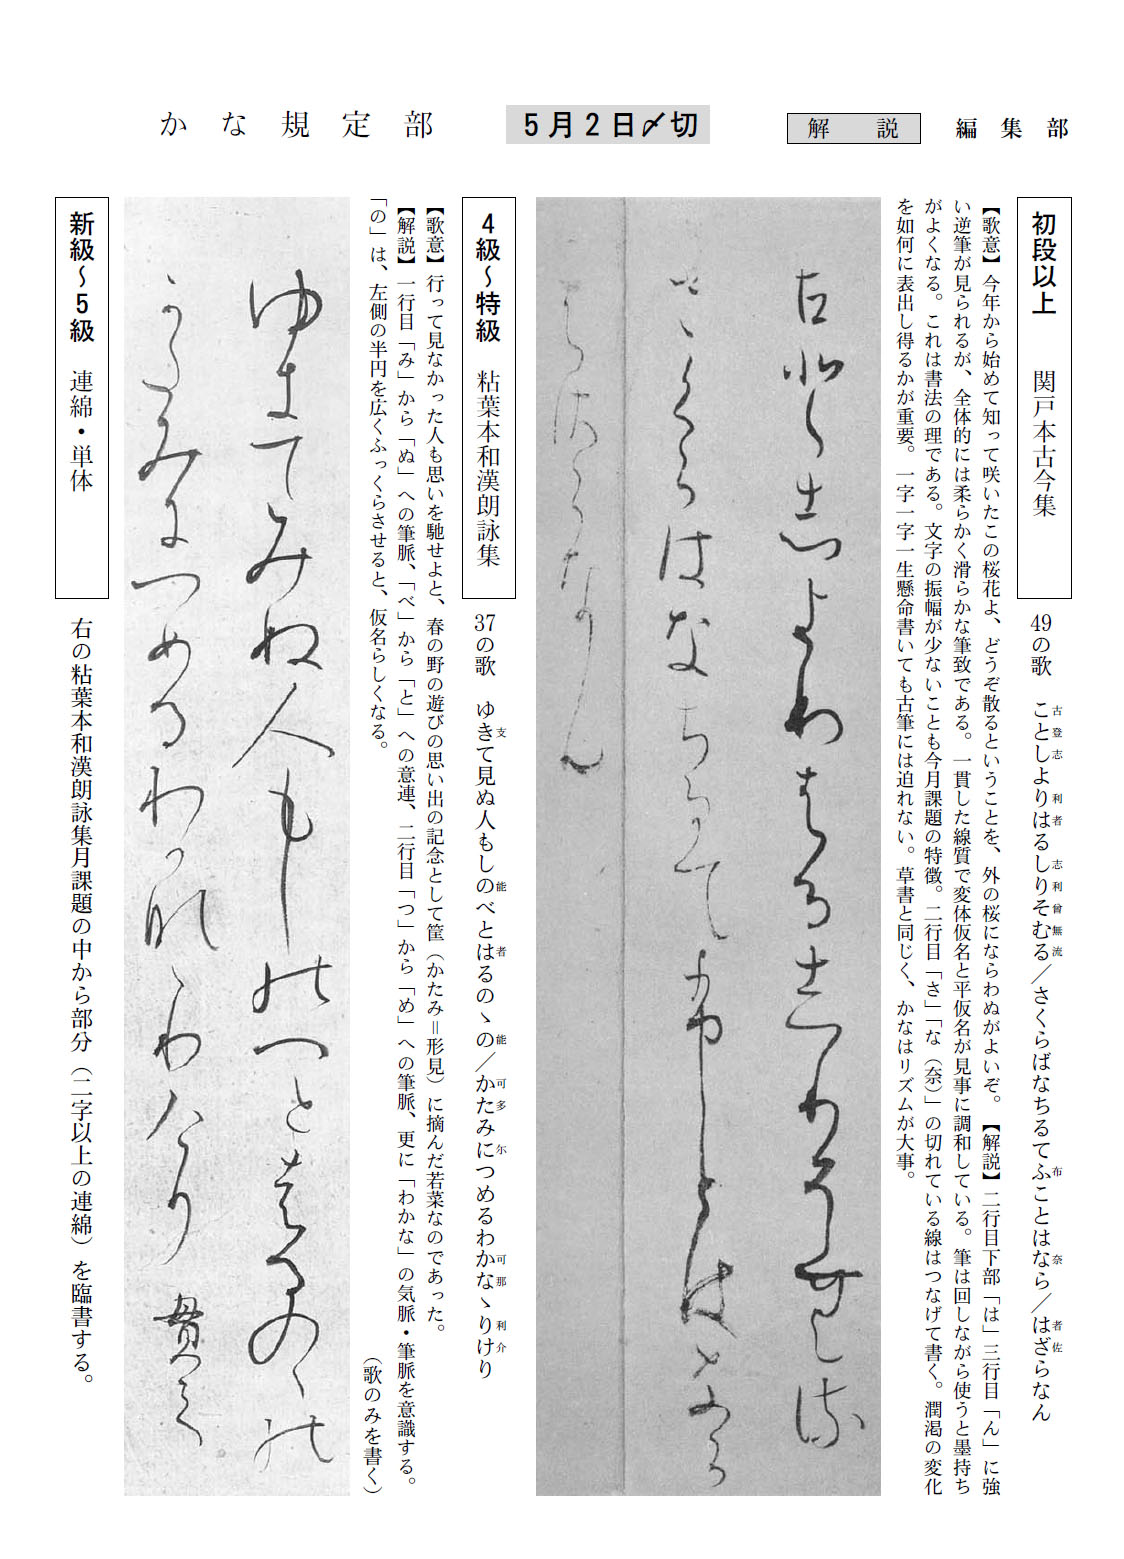 かな規定部
5月2日〆切
解説
編集部
初段以上 関戸本古今集
49の歌 ことしよりはるしりそむる／さくらばなちるてふことはなら／はざらなん
古登志 利者 志利曽無流 布 奈 者佐
【歌意】今年から始めて知って咲いたこの桜花よ、どうぞ散るということを、外の桜にならわぬがよいぞ。【解説】二行目下部「は」三行目「ん」に強
い逆筆が見られるが、全体的には柔らかく滑らかな筆致である。一貫した線質で変体仮名と平仮名が見事に調和している。筆は回しながら使うと墨持ち
がよくなる。これは書法の理である。文字の振幅が少ないことも今月課題の特徴。二行目「さ」「な（奈）」の切れている線はつなげて書く。潤渇の変化
を如何に表出し得るかが重要。一字一字一生懸命書いても古筆には迫れない。草書と同じく、かなはリズムが大事。
古登志よ利者る志利曽無流
さくらはなちるてふことはなら
者佐らなん
4級～特級 粘葉本和漢朗詠集
37の歌 ゆきて見ぬ人もしのべとはるのゝの／かたみにつめるわかなゝりけり
支 能 者 能 可多 尓 可那 利介
【歌意】行って見なかった人も思いを馳せよと、春の野の遊びの思い出の記念として筐（かたみ＝形見）に摘んだ若菜なのであった。
【解説】一行目「み」から「ぬ」への筆脈、「べ」から「と」への意連、二行目「つ」から「め」への筆脈、更に「わかな」の気脈・筆脈を意識する。
「の」は、左側の半円を広くふっくらさせると、仮名らしくなる。
（歌のみを書く）
ゆ支てみぬ人もし能へと者るのゝ能
可多みにつめるわ可那ゝりけり 貫之
新級～5級 連綿・単体
右の粘葉本和漢朗詠集月課題の中から部分（二字以上の連綿）を臨書する。